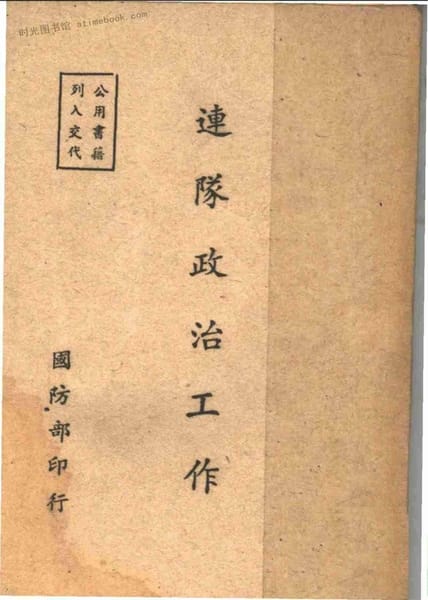 时光图书馆 atimebook.com
公用書籍
列入交代
連隊政治工作
國防部印行